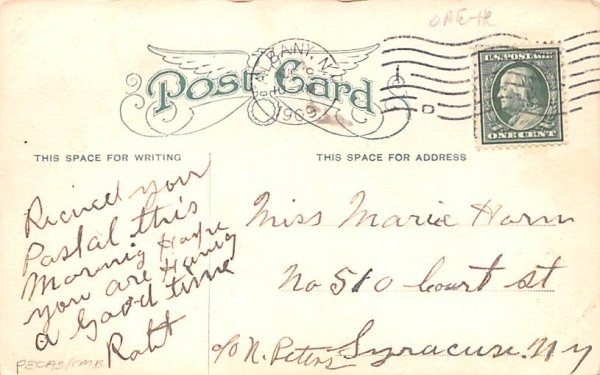 ONE-H
Post Card
ALBANY, N.
1909
D
U.S. POSTAGE
ONE CENT
THIS SPACE FOR WRITING
THIS SPACE FOR ADDRESS
Recived your
Postal this
Mornig Hope
you are Having
a Good time
Robt
Miss Marie Horn
No 510 Court st
c/o N. Peters Syracuse. Ny